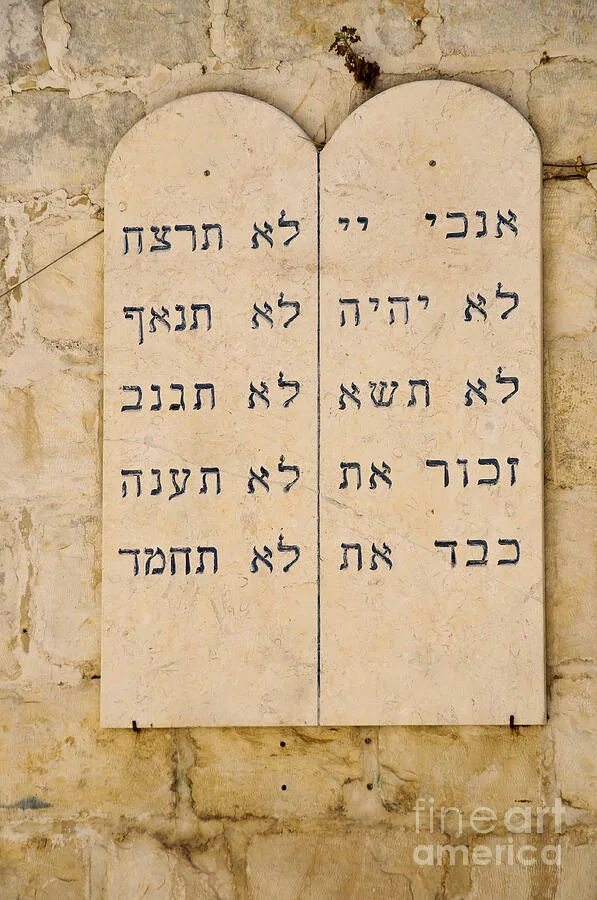 אנכי יי
לא יהיה
לא תשא
זכור את
כבד את
לא תרצח
לא תנאף
לא תגנב
לא תענה
לא תחמד
fine art
america